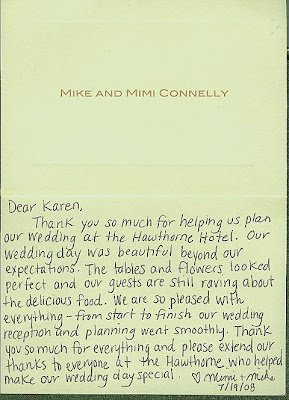 MIKE AND MIMI CONNELLY
Dear Karen,
Thank you so much for helping us plan
our wedding at the Hawthorne Hotel. Our
wedding day was beautiful beyond our
expectations. The tables and flowers looked
perfect and our guests are still raving about
the delicious food. We are so pleased with
everything - from start to finish our wedding
reception and planning went smoothly. Thank
you so much for everything and please extend our
thanks to everyone at the Hawthorne who helped
make our wedding day special. ♡ Mimi + Mike
7/19/08